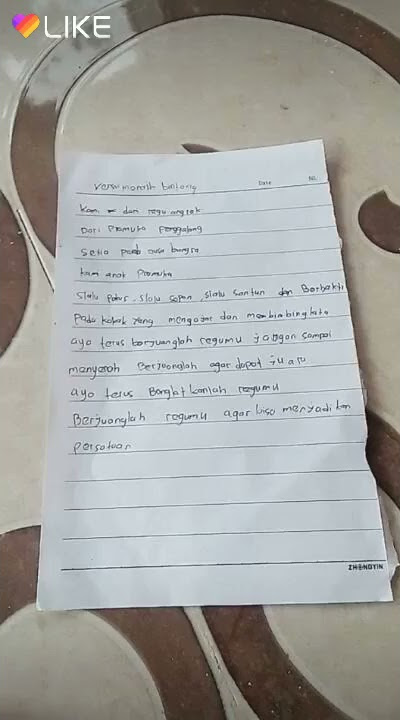 LIKE
Versi meraih bintang
Date No.
Kami dari regu anggrek
Dari Pramuka Penggalang
Setia pada nusa bangsa
kami anak Pramuka
Slalu patuh, slalu sopan, slalu santun dan Berbakti
Pada kakak yang mengajar dan membimbing kita
ayo terus berjuanglah regumu jangan sampai
menyerah Berjuanglah agar dapat juara
ayo terus Bangkitkanlah regumu
Berjuanglah regumu agar bisa menjadikan
persatuan
ZHENGYIN